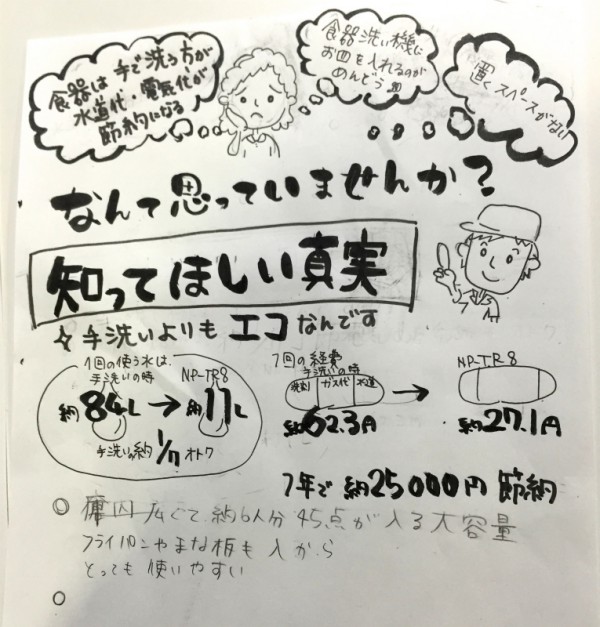 食器は手で洗う方が
水道代・電気代が
節約になる
食器洗い機に
お皿を入れるのが
めんどう
置くスペースがない
なんて思っていませんか？
知ってほしい真実
手洗いよりもエコなんです
1回の使う水は、
手洗いの時
NP-TR8
約84L→約11L
手洗いの約1/7オトク
1回の経費
手洗いの時
洗剤 ガス代 水道
約62.3円
→
NP-TR8
約27.1円
1年で約25000円節約
広くて約6人分45点が入る大容量
フライパンやまな板も入から
とっても使いやすい